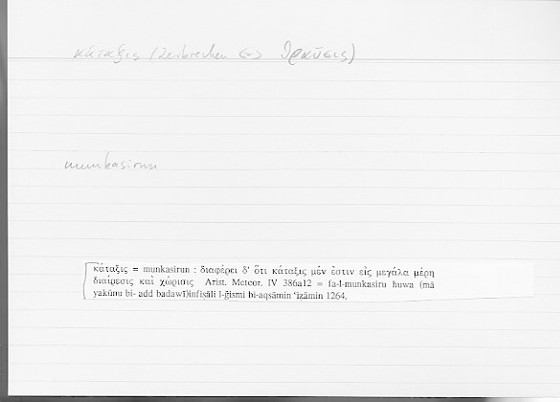 κάταξις (zerbrechen <-> θραῦσις)
munkasirun
κάταξις = munkasirun : διαφέρει δ' ὅτι κάταξις μέν ἐστιν εἰς μεγάλα μέρη
διαίρεσις καὶ χώρισις Arist. Meteor. IV 386a12 = fa-l-munkasiru huwa (mā
yakūnu bi- add badawī)infiṣāli l-ǧismi bi-aqsāmin ʿiẓāmin 1264.